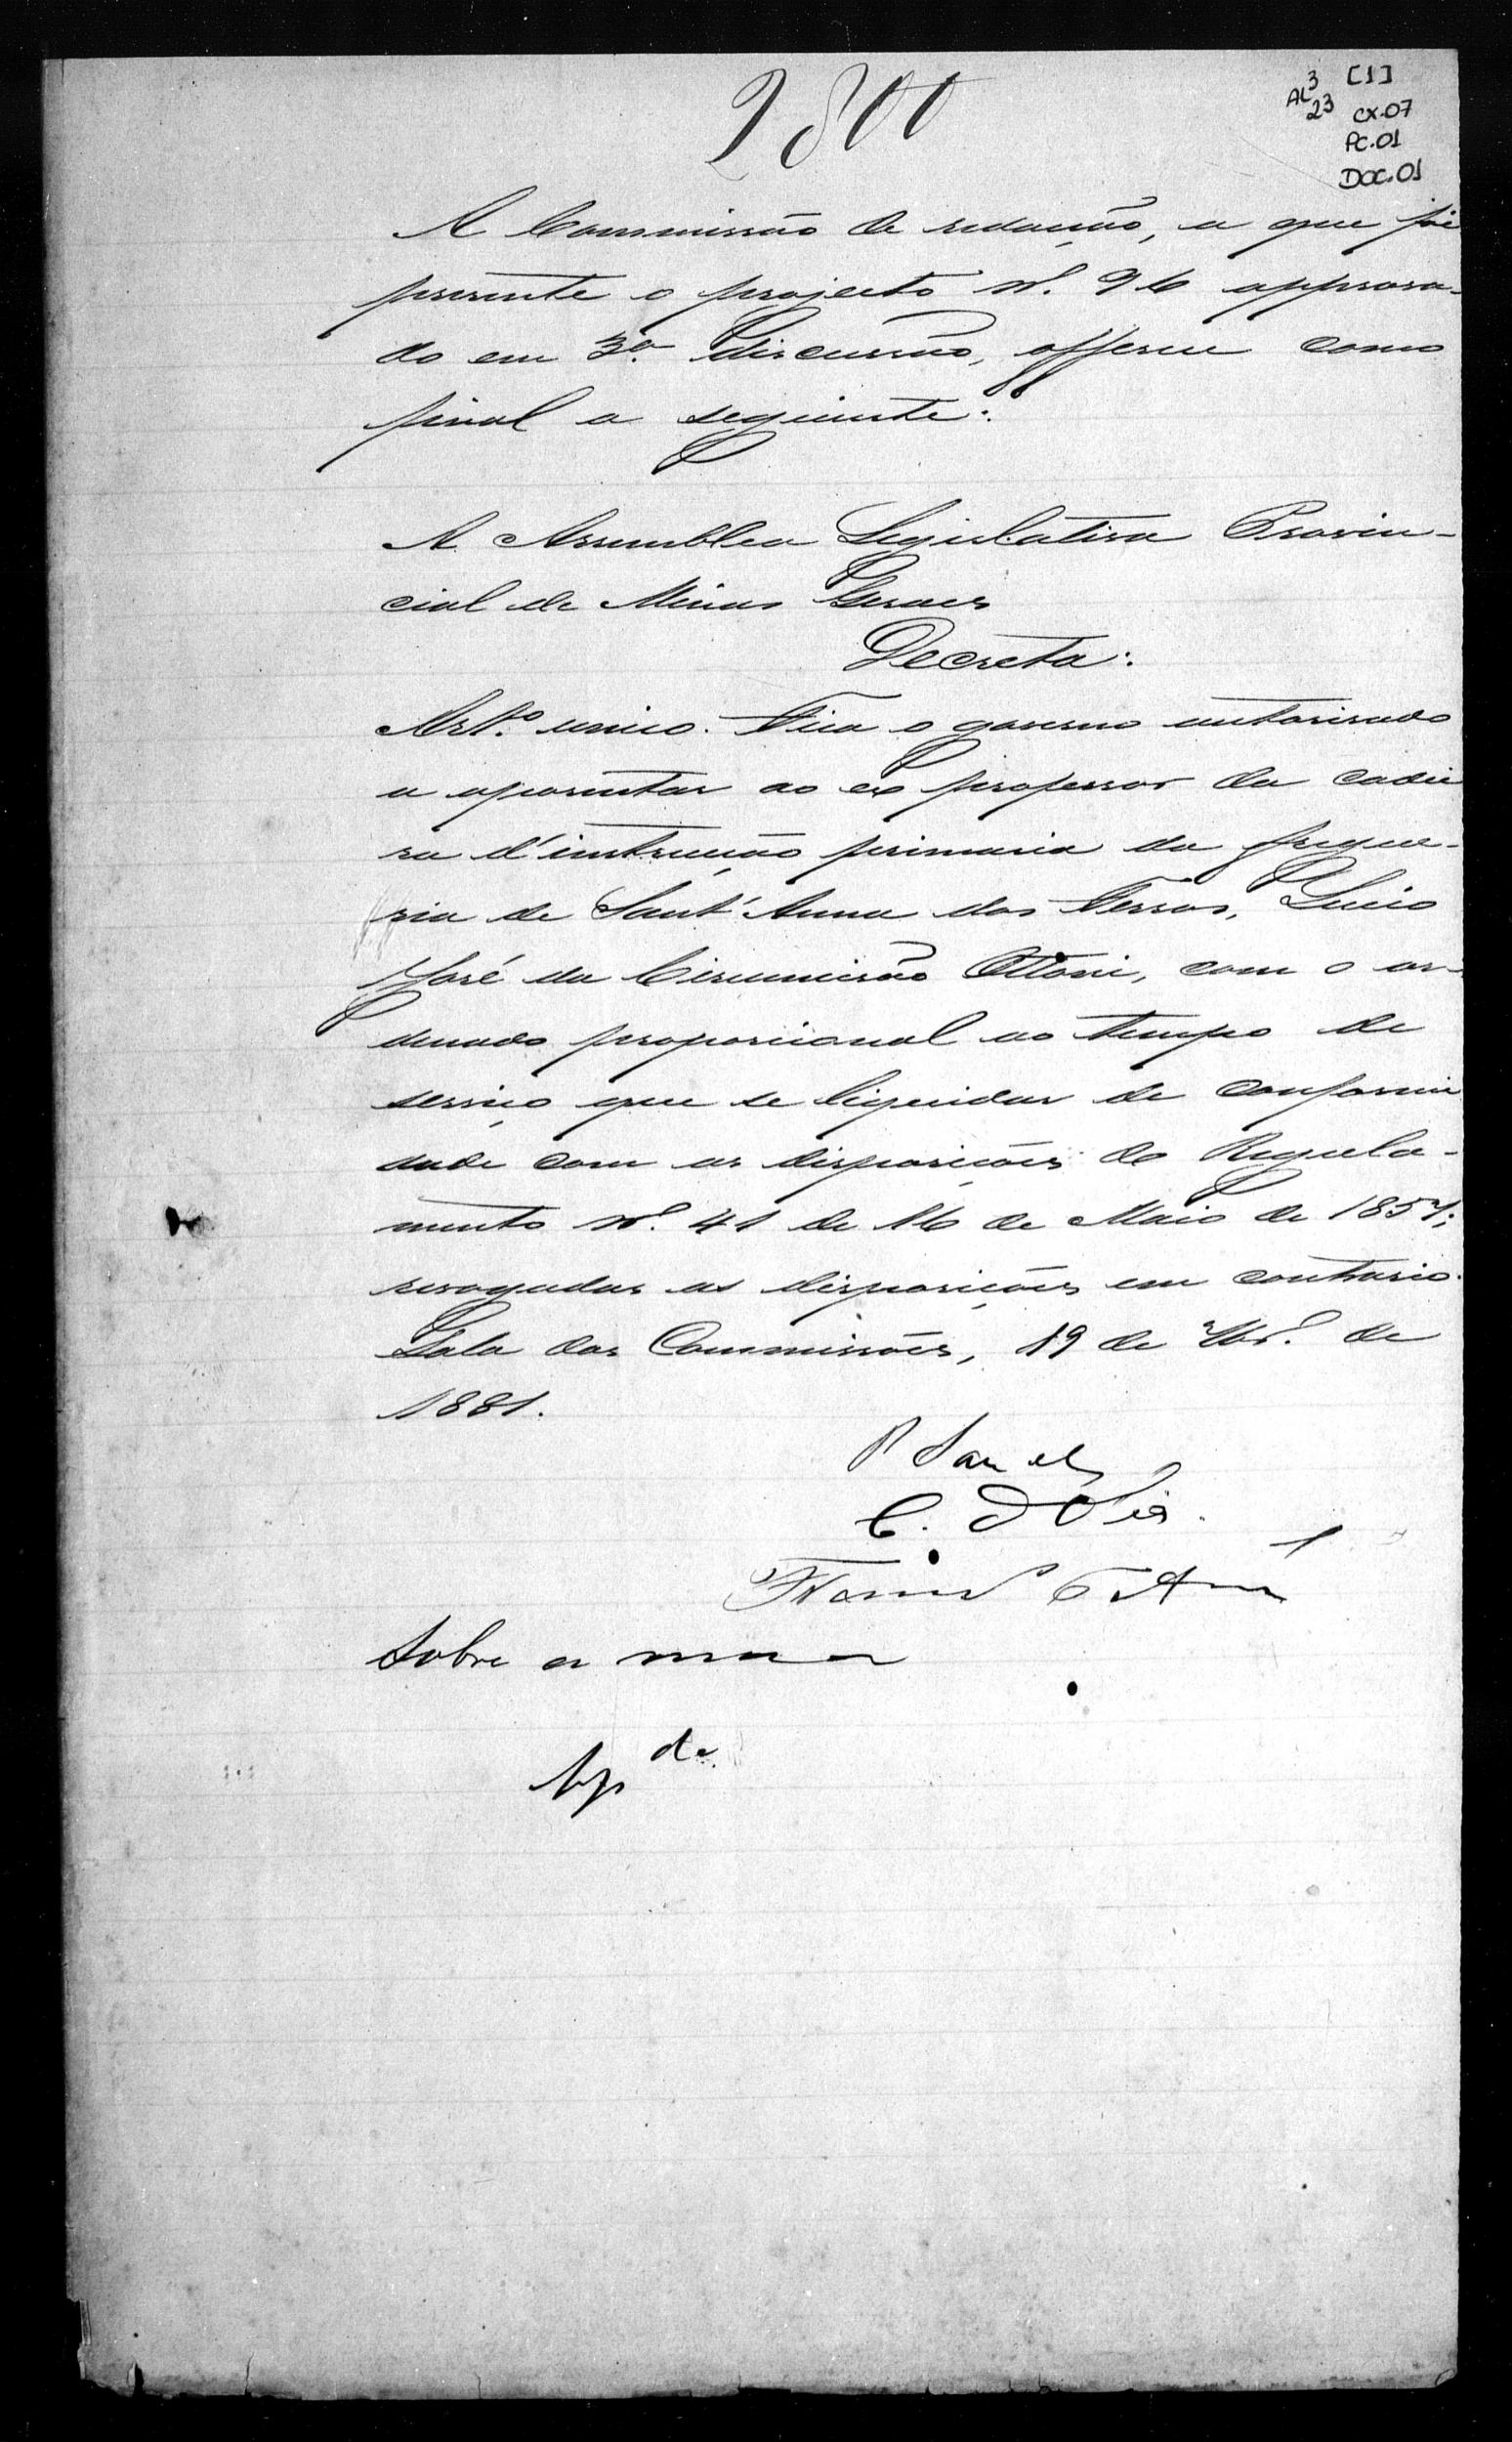 2800
AL 3/23 [1]
CX.07
PC.01
DOC.01
A Commissão de redacção, a que foi
presente o projecto nº. 96 approva-
do em 3ª discussão, offerece como
final a seguinte:
A Assemblea Legislativa Provin-
cial de Minas Geraes
Decreta:
Artº. unico. Fica o governo autorisado
a aposentar ao ex professor da cadei
ra d'instrucção primaria da fregue-
sia de Sant'Anna dos Ferros, Lucio
José da Circumcisão Ottoni, com o or-
denado proporcional ao tempo de
serviço que se liquidar de conformi
dade com as disposições do Regula-
mento nº. 41 de 16 de Maio de 1857;
revogadas as disposições em contrario.
Sala das Commissões, 19 de de
1881.
C.
Sobre a mesa
Apda.